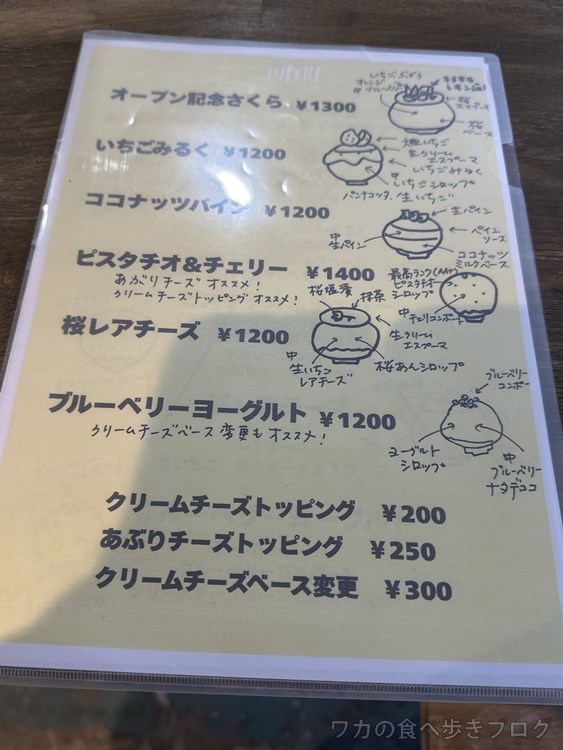 オープン記念さくら ¥1300
いちごぶどう
オレンジ
中 ブルーベリー
桜
エスプーマ
桜
ベース
いちごみるく ¥1200
生クリーム
エスプーマ
いちごみるく
中
いちごシロップ
パンナコッタ、生いちご
ココナッツパイン ¥1200
生パイン
パイン
ソース
中
生パイン
ココナッツ
ミルクベース
ピスタチオ&チェリー ¥1400
あぶりチーズ オススメ!
クリームチーズトッピング オススメ!
最高ランク(AA+)
ピスタチオ
シロップ
中
チェリコンポート
桜レアチーズ ¥1200
桜塩漬
抹茶
生クリーム
エスプーマ
桜あんシロップ
中
生いちご
レアチーズ
ブルーベリーヨーグルト ¥1200
クリームチーズベース変更もオススメ!
ブルーベリー
コンポート
ヨーグルト
シロップ
中
ブルーベリー
ナタデココ
クリームチーズトッピング ¥200
あぶりチーズトッピング ¥250
クリームチーズベース変更 ¥300
ワカの食べ歩きブログ